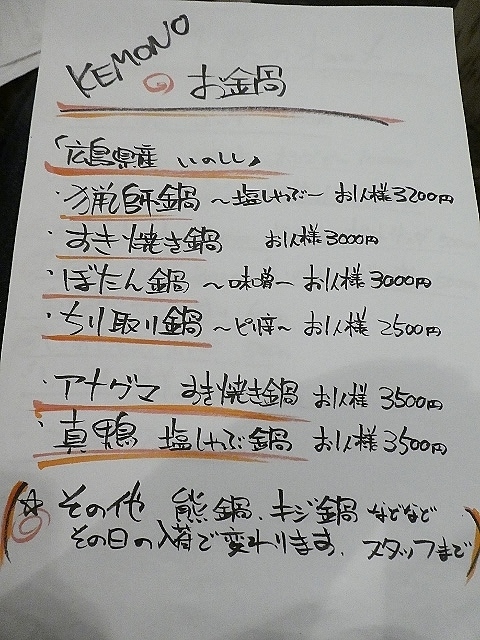 KEMONO お鍋
「広島県産 いのしし」
・猟師鍋 〜塩しゃぶ〜 お1人様3200円
・すき焼き鍋 お1人様3000円
・ぼたん鍋 〜味噌〜 お1人様3000円
・ちり取り鍋 〜ピリ辛〜 お1人様2500円
・アナグマ すき焼き鍋 お1人様3500円
・真鴨 塩しゃぶ鍋 お1人様3500円
☆その他 熊鍋、キジ鍋 などなど
その日の入荷で変わります、スタッフまで